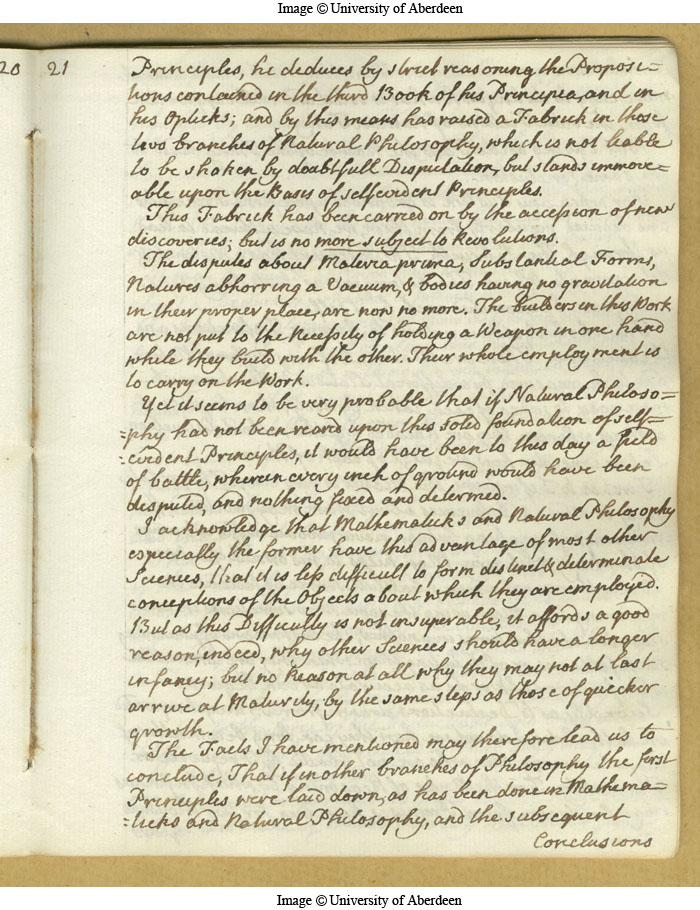 Image © University of Aberdeen
20 21
Principles, he deduces by strict reasoning the Proposi=
tions contained in the third Book of his Principia, and in
his Opticks; and by this means has raised a Fabrick in those
two branches of Natural Philosophy, which is not leable
to be shaken by doubtfull Disputation, but stands immove=
able upon the Basis of selfevident Principles.
This Fabrick has been carried on by the accession of new
discoveries; but is no more subject to Revolutions.
The disputes about Materia prima, Substantial Forms,
Natures abhorring a Vacuum, & bodies having no gravitation
in their proper place, are now no more. The builders in this Work
are not put to the Necessity of holding a Weapon in one hand
while they build with the other. Their whole employment is
to carry on the Work.
Yet it seems to be very probable that if Natural Philoso=
=phy had not been reard upon this solid foundation of self=
=evident Principles, it would have been to this day a field
of battle, wherein every inch of ground would have been
disputed, and nothing fixed and determed.
I acknowledge that Mathematicks and Natural Philosophy
especially the former have this advantage of most other
Sciences, that it is less difficult to form distinct & determinate
conceptions of the Objects about which they are employed.
But as this Difficulty is not insuperable, it affords a good
reason, indeed, why other Sciences should have a longer
infancy; but no Reason at all why they may not at last
arrive at Maturity, by the same steps as those of quicker
growth.
The Facts I have mentioned may therefore lead us to
conclude, That if in other branches of Philosophy the first
Principles were laid down, as has been done in Mathema=
=ticks and Natural Philosophy, and the subsequent
Conclusions
Image © University of Aberdeen